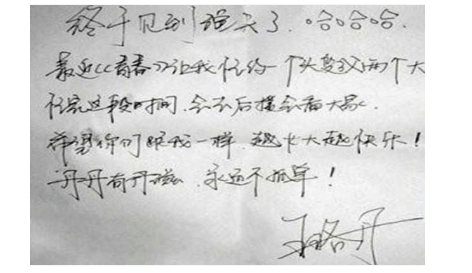 终于见到蓝天了，哈哈哈
最近《青春》让我忙得一个头变成两个大
忙完这段时间，会去后援会看大家
希望你们跟我一样，越长大越快乐！
丹丹有开磁，永远不孤单！
王珞丹